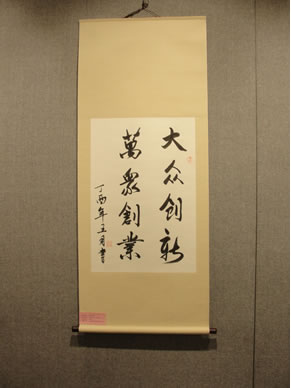 大众创新
萬衆創業
丁酉年五月書